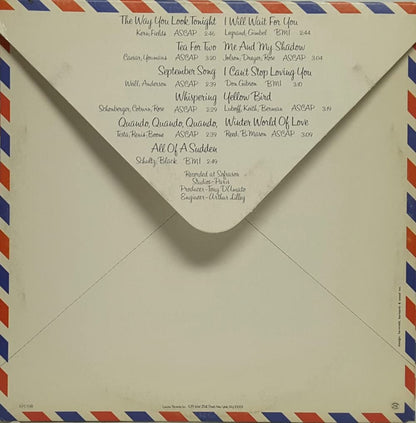 The Way You Look Tonight
Kern, Fields ASCAP 2:46
Tea For Two
Caesar, Youmans ASCAP 3:20
September Song
Weill, Anderson ASCAP 2:39
Whispering
Schonberger, Coburn, Rose ASCAP 2:39
Quando, Quando, Quando,
Testa, Renis, Boone ASCAP 2:39
All Of A Sudden
Schultz, Black BMI 2:49
I Will Wait For You
Legrand, Gimbel BMI 2:44
Me And My Shadow
Jolson, Dreyer, Rose ASCAP 3:04
I Can't Stop Loving You
Don Gibson BMI 3:10
Yellow Bird
Luboff, Keith, Berman ASCAP 3:19
Winter World Of Love
Reed, B. Mason ASCAP 3:09
Recorded at
Studios-Paris
Producer-Tony D'Amato
Engineer-Arthur Lilley